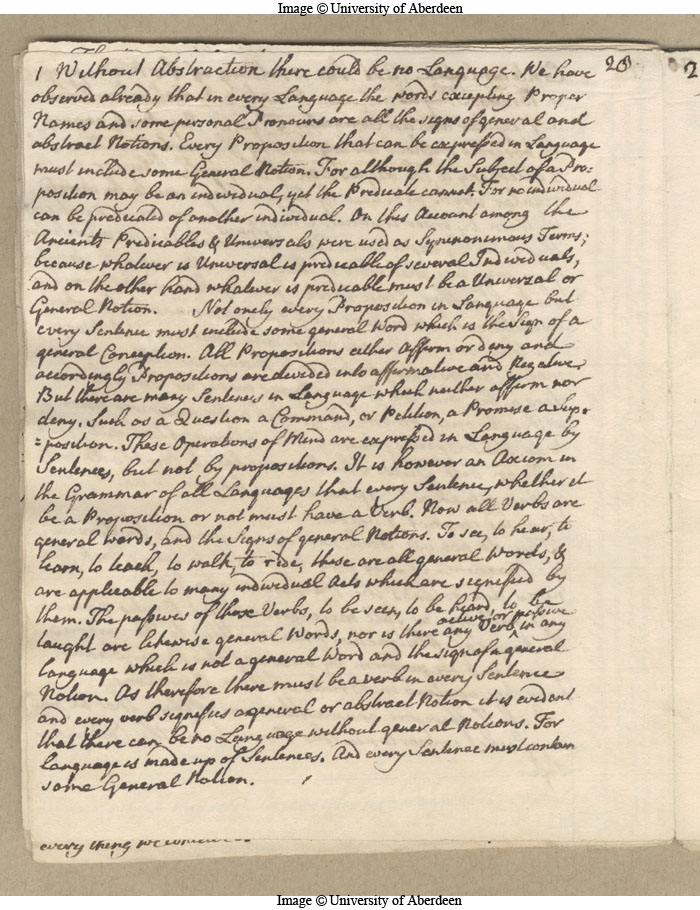 Image © University of Aberdeen
1 Without Abstraction there could be no Language. We have 23
2
observed already that in every Language the words excepting Proper
Names and some personal Pronouns are all the signs of general and
abstract Notions. Every Proposition that can be expressed in Language
must include some General Notion. For although the Subject of a Pro=
position may be an individual, yet the Predicate cannot. For no individual
can be predicated of another individual. On this Account among the
Ancients Predicables & Universals were used as Synonimous Terms;
because whatever is Universal is predicable of several Individuals,
and on the other hand whatever is predicable must be a Universal or
General Notion. Not onely every Proposition in Language but
every Sentence must include some general Word which is the Sign of a
general Conception. All Propositions either affirm or deny and
accordingly Propositions are devided into affirmative and Negative.
But there are many Sentences in Language which neither affirm nor
deny. Such as a Question a Command, or Petition, a Promise a Sup=
=position. These Operations of Mind are expressed in Language by
Sentences, but not by propositions. It is however an Axiom in
the Grammar of all Languages that every Sentence, whether it
be a Proposition or not must have a Verb. Now all Verbs are
general words, and the Signs of general Notions. To see, to hear, to
learn, to teach, to walk, to ride, these are all general Words, &
are applicable to many individual Acts which are signified by
them. The passives of those Verbs, to be seen, to be heard, to be
taught are likewise general Words, nor is there any Verb active or passive in any
language which is not a general Word and the sign of a general
Notion. As therefore there must be a verb in every Sentence
and every verb signifies a general or abstract Notion it is evident
that there can be no Language without general Notions. For
Language is made up of Sentences. And every Sentence must contain
some General Notion.
every thing we
Image © University of Aberdeen